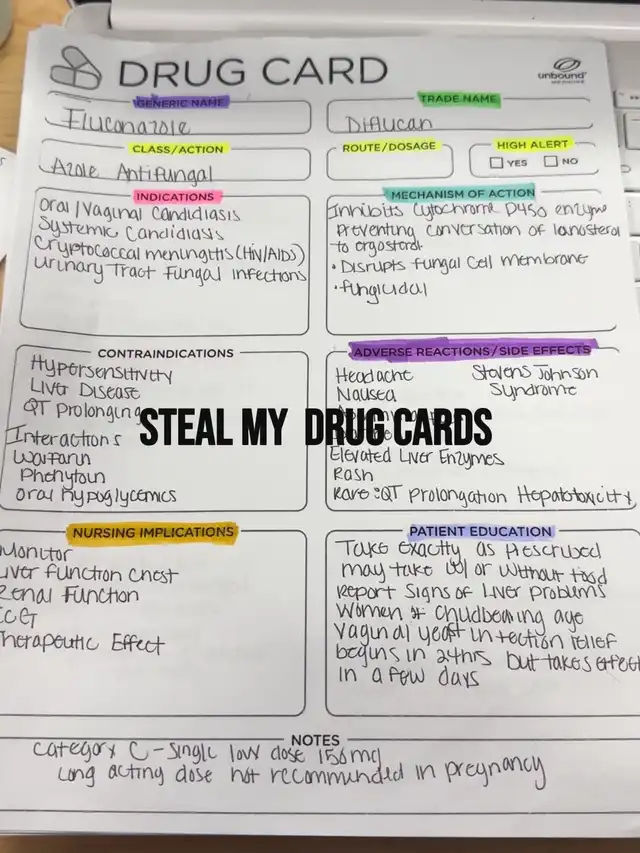 DRUG CARD
unbound
MEDICINE
GENERIC NAME
Fluconazole
TRADE NAME
Diflucan
CLASS/ACTION
Azole Antifungal
ROUTE/DOSAGE
HIGH ALERT
YES NO
INDICATIONS
Oral/Vaginal Candidiasis
Systemic Candidiasis
Cryptococcal meningitis (HIV/AIDS)
Urinary Tract Fungal infections
MECHANISM OF ACTION
Inhibits Cytochrome P450 enzyme
Preventing conversation of lanosterol
to ergosterol
• Disrupts fungal cell membrane
• fungicidal
CONTRAINDICATIONS
Hypersensitivity
Liver Disease
QT Prolonging
Interactions
Warfarin
Phenytoin
Oral hypoglycemics
ADVERSE REACTIONS/SIDE EFFECTS
Headache
Nausea
Elevated Liver Enzymes
Rash
Rare: QT Prolongation Hepatotoxicity
Stevens Johnson
Syndrome
STEAL MY DRUG CARDS
NURSING IMPLICATIONS
Monitor
Liver function
Renal Function
ECG
Therapeutic Effect
PATIENT EDUCATION
Take exactly as Prescribed
may take w/ or without food
Report Signs of Liver problems
Women of Childbearing age
Vaginal yeast infection relief
begins in 24hrs but takes effect
in a few days
NOTES
Category C - Single low dose 150mg
Long acting dose not recommended in pregnancy